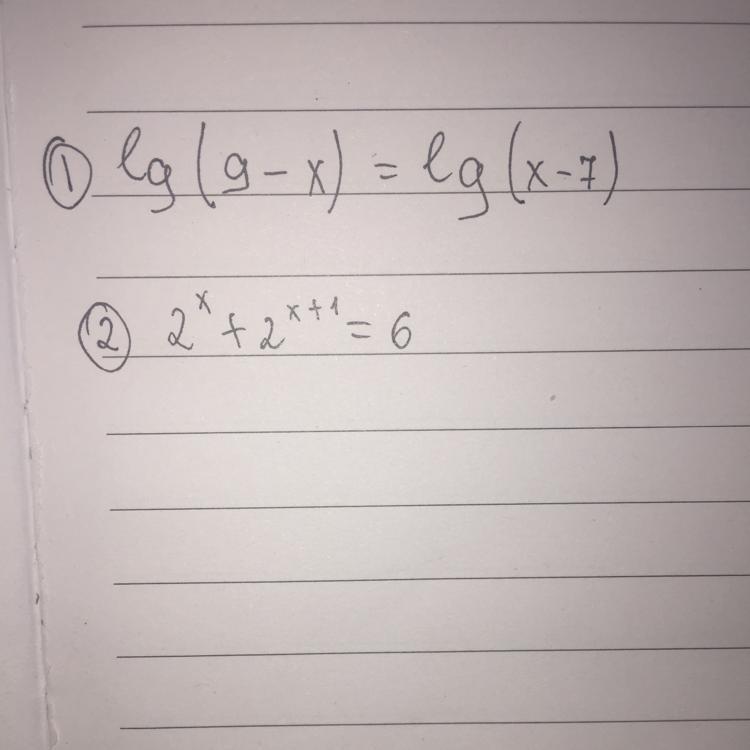 ① lg(9-x) = lg(x-7)
② 2^x + 2^{x+1} = 6